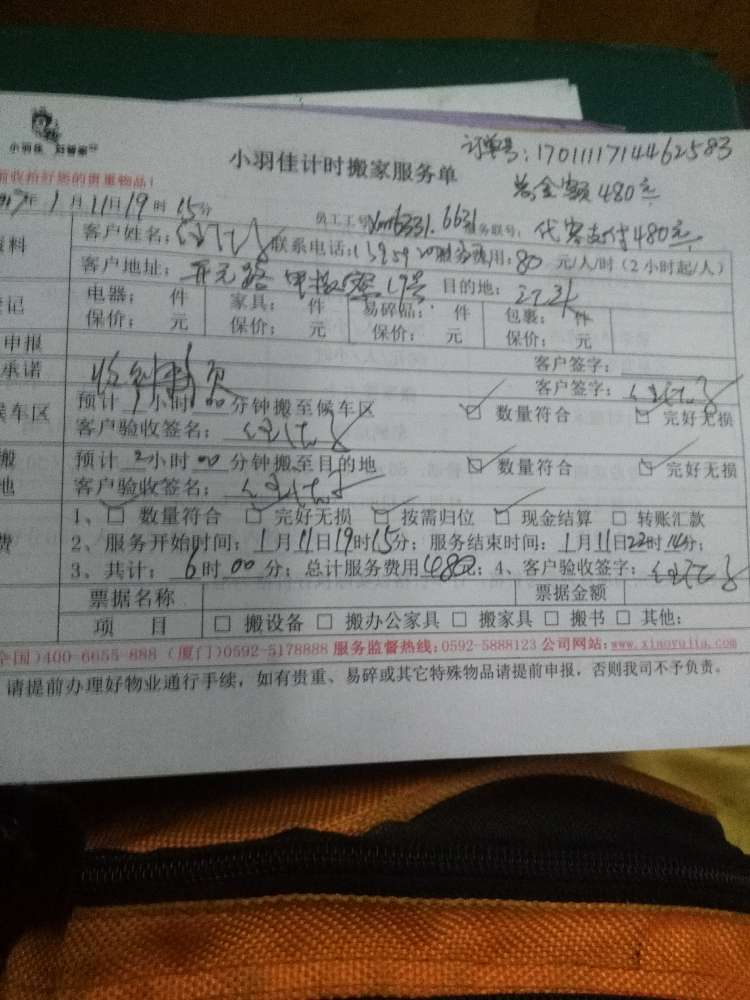 小羽佳 好管家
小羽佳计时搬家服务单
订单号:1701111714462583
总金额480元
前收拾好您的贵重物品!
年1月11日19时15分
员工工号 xm6331.6631 服务联号: 代客支付480元
资料
客户姓名: 联系电话: 服务费用:80元/人/时(2小时起/人)
客户地址:开元路 17号 目的地:
登记
电器: 件 家具: 件 易碎品: 件 包裹: 件
保价: 元 保价: 元 保价: 元 保价: 元
申报
客户签字:
承诺
客户签字:
候车区
预计1小时00分钟搬至候车区 ☑ 数量符合 ☑ 完好无损
客户验收签名:
搬
预计2小时00分钟搬至目的地 ☑ 数量符合 ☑ 完好无损
地
客户验收签名:
1、☑ 数量符合 ☑ 完好无损 ☑ 按需归位 ☑ 现金结算 □ 转账汇款
费
2、服务开始时间:1月11日19时15分;服务结束时间:1月11日22时14分;
3、共计:6时00分;总计服务费用480元;4、客户验收签字:
票据名称 票据金额
项 目 □ 搬设备 □ 搬办公家具 □ 搬家具 □ 搬书 □ 其他:
全国)400-6655-888 (厦门)0592-5178888 服务监督热线:0592-5888123 公司网站:www.xiaoyujia.com
请提前办理好物业通行手续,如有贵重、易碎或其它特殊物品请提前申报,否则我司不予负责。